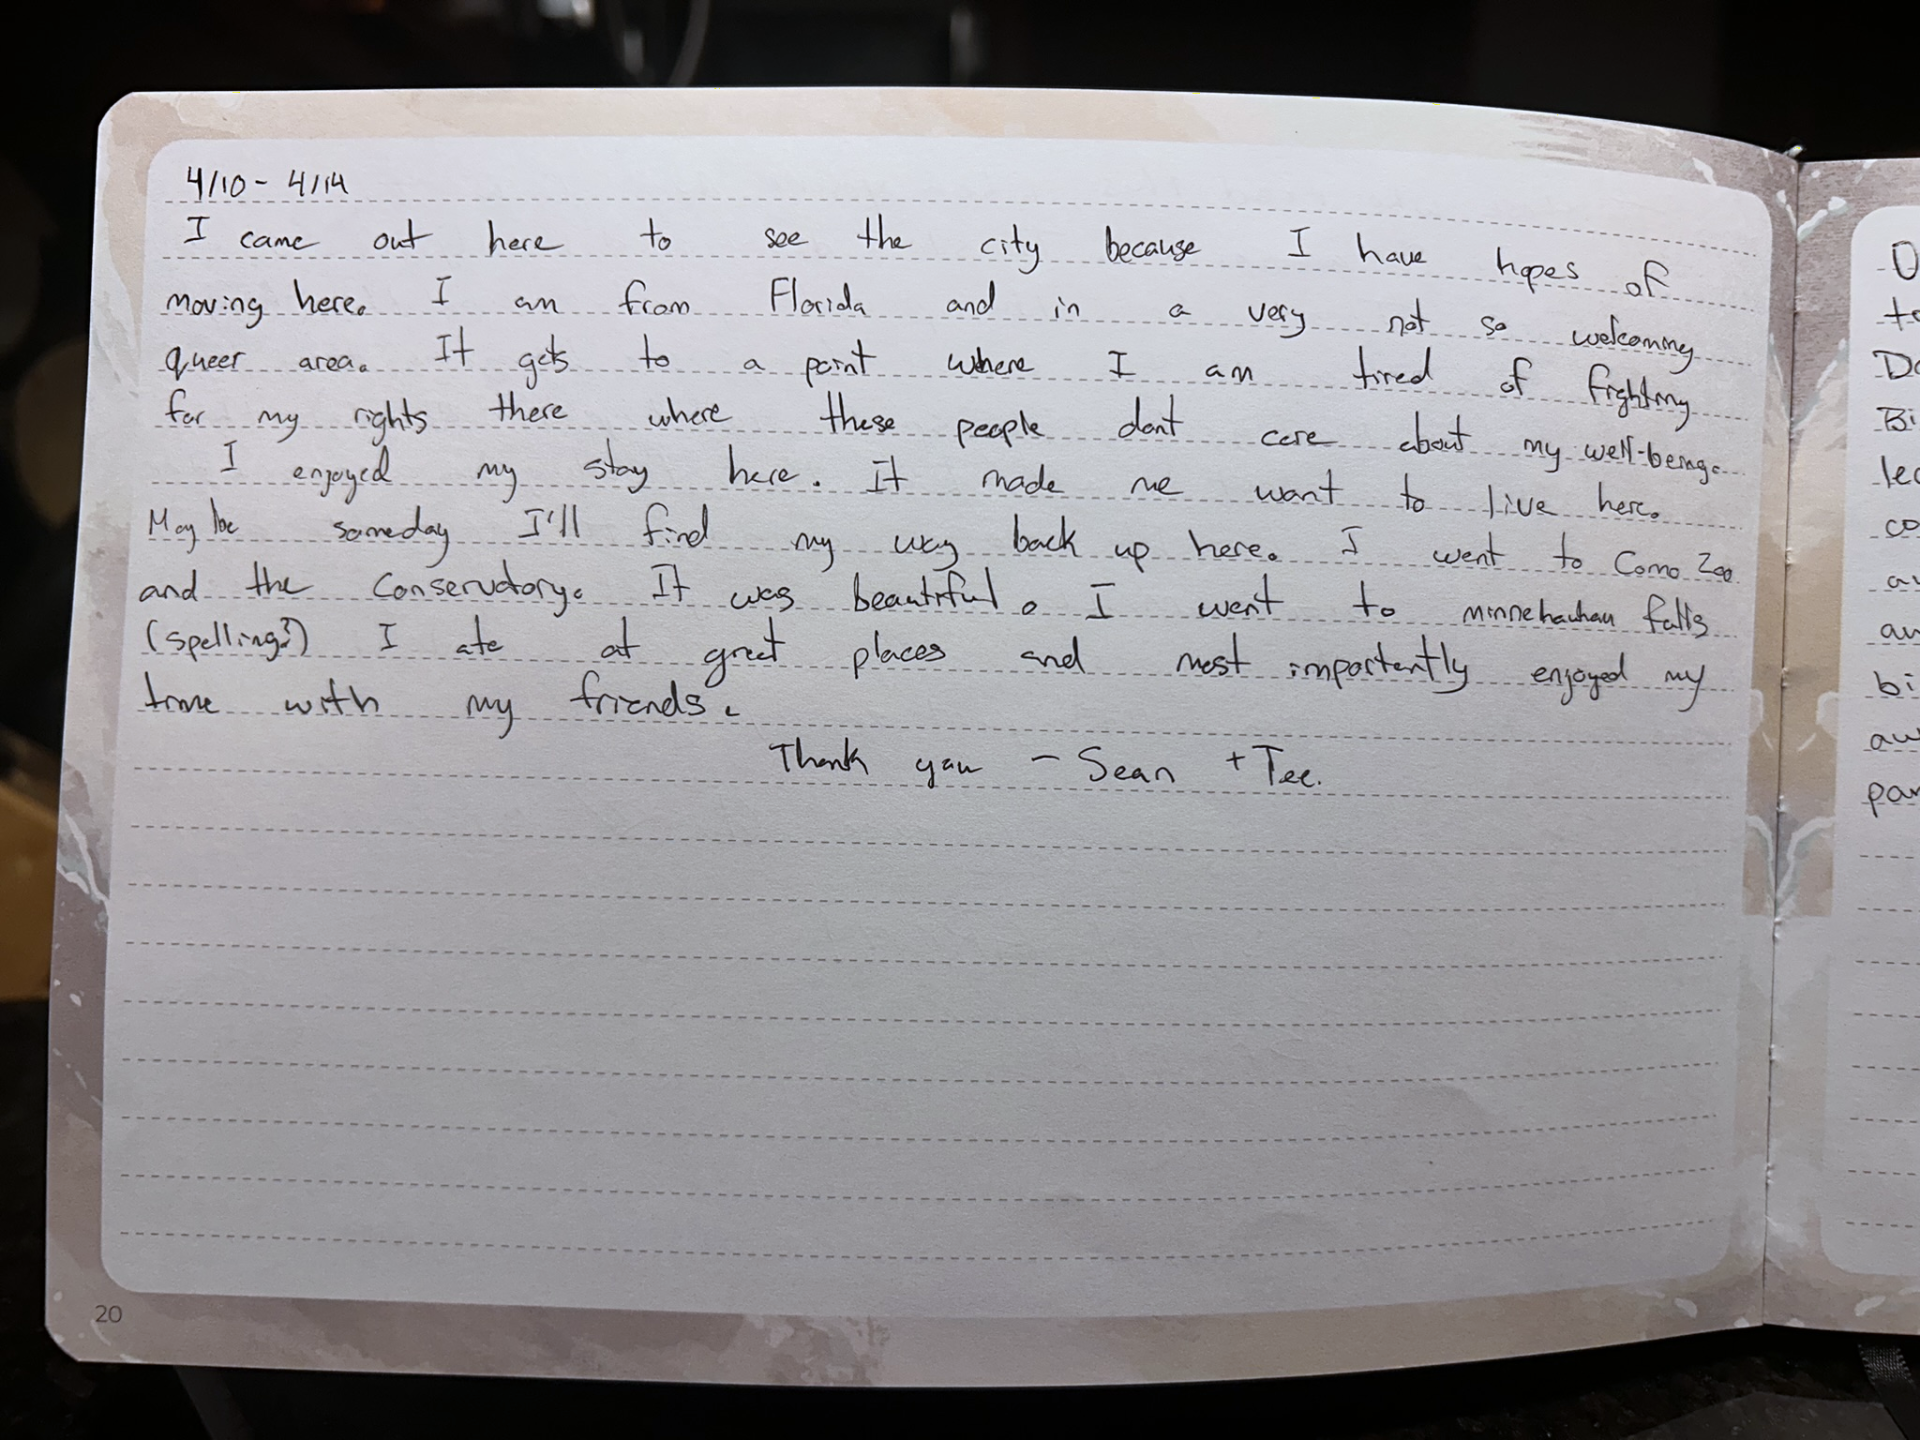 4/10 - 4/14
I came out here to see the city because I have hopes of
moving here. I am from Florida and in a very not so welcoming
queer area. It gets to a point where I am tired of fighting
for my rights there where these people dont care about my well-being.
I enjoyed my stay here. It made me want to live here.
Maybe someday I'll find my way back up here. I went to Como Zoo
and the Conservatory. It was beautiful. I went to minnehauhau falls
(spelling?) I ate at great places and most importently enjoyed my
time with my friends.
Thank you - Sean + Tee.
20